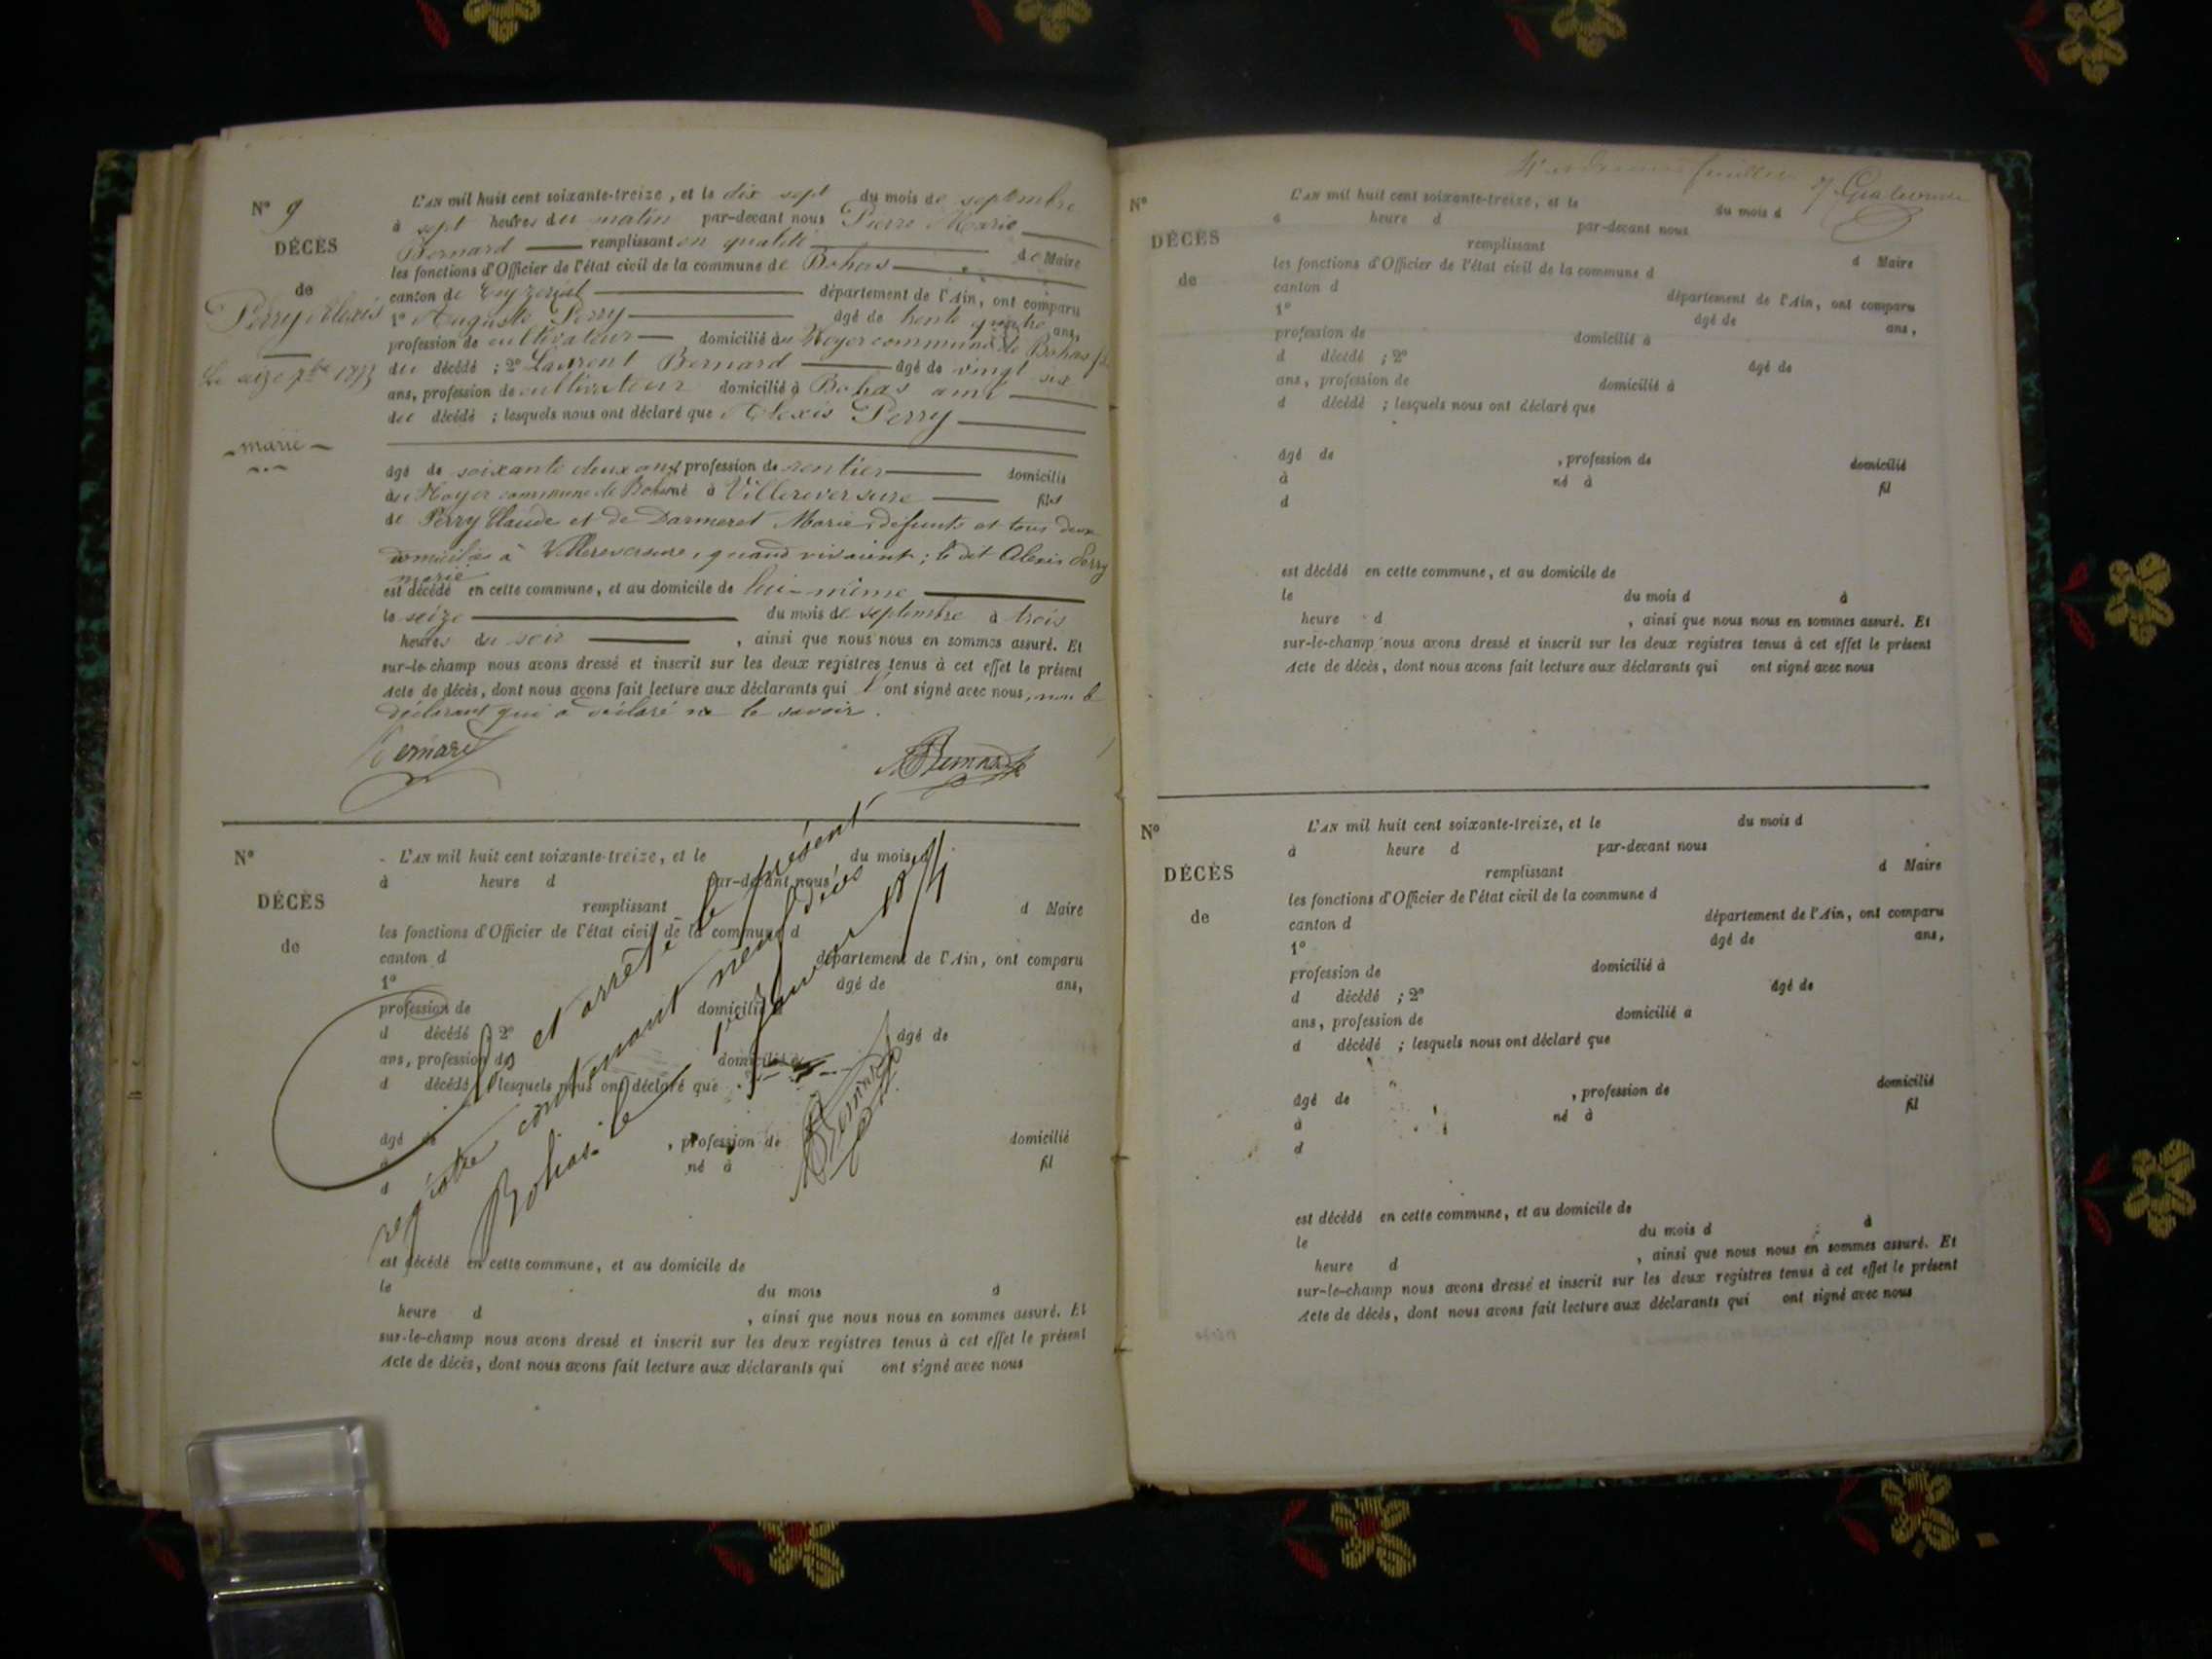 N° 9
DÉCÈS
de
Perry Alexis
Le seize 7bre 1873
marié
L'AN mil huit cent soixante-treize, et le dix sept du mois de septembre
à sept heures du matin par-devant nous Pierre Marie
Bernard remplissant en qualité de Maire
les fonctions d'Officier de l'état civil de la commune de Bohas
canton de Ceyzeriat département de l'Ain, ont comparu
1° Auguste Perry âgé de trente quatre ans,
profession de cultivateur domicilié au Noyer commune de Bohas
du décédé ; 2° Laurent Bernard âgé de vingt six
ans, profession de cultivateur domicilié à Bohas ami
du décédé ; lesquels nous ont déclaré que Alexis Perry
âgé de soixante deux ans profession de rentier domicilié
au Noyer commune de Bohas né à Villereversure fils
de Perry Claude et de Darmeret Marie, défunts et tous deux
domiciliés à Villereversure, quand vivaient ; le dit Alexis Perry
marié
est décédé en cette commune, et au domicile de lui-même
le seize du mois de septembre à trois
heures du soir , ainsi que nous nous en sommes assuré. Et
sur-le-champ nous avons dressé et inscrit sur les deux registres tenus à cet effet le présent
Acte de décès, dont nous avons fait lecture aux déclarants qui l'ont signé avec nous, non le
déclarant qui a déclaré ne le savoir.
Bernard
Bernard
N°
DÉCÈS
de
L'AN mil huit cent soixante-treize, et le du mois d
à heure d par-devant nous
remplissant d Maire
les fonctions d'Officier de l'état civil de la commune d
canton d département de l'Ain, ont comparu
1° âgé de ans,
profession de domicilié à
d décédé ; 2° âgé de
ans, profession de domicilié à
d décédé ; lesquels nous ont déclaré que
âgé de , profession de domicilié
à né à fil
d
Clos et arrêté le présent
registre contenant neuf décès
Bohas le 1er Janvier 1874
Bernard
est décédé en cette commune, et au domicile de
le du mois à
heure d , ainsi que nous nous en sommes assuré. Et
sur-le-champ nous avons dressé et inscrit sur les deux registres tenus à cet effet le présent
Acte de décès, dont nous avons fait lecture aux déclarants qui ont signé avec nous
feuillet
N°
DÉCÈS
de
L'AN mil huit cent soixante-treize, et le du mois d
à heure d par-devant nous
remplissant d Maire
les fonctions d'Officier de l'état civil de la commune d
canton d département de l'Ain, ont comparu
1° âgé de ans,
profession de domicilié à
d décédé ; 2° âgé de
ans, profession de domicilié à
d décédé ; lesquels nous ont déclaré que
âgé de , profession de domicilié
à né à fil
d
est décédé en cette commune, et au domicile de
le du mois d à
heure d , ainsi que nous nous en sommes assuré. Et
sur-le-champ nous avons dressé et inscrit sur les deux registres tenus à cet effet le présent
Acte de décès, dont nous avons fait lecture aux déclarants qui ont signé avec nous
N°
DÉCÈS
de
L'AN mil huit cent soixante-treize, et le du mois d
à heure d par-devant nous
remplissant d Maire
les fonctions d'Officier de l'état civil de la commune d
canton d département de l'Ain, ont comparu
1° âgé de ans,
profession de domicilié à
d décédé ; 2° âgé de
ans, profession de domicilié à
d décédé ; lesquels nous ont déclaré que
âgé de , profession de domicilié
à né à fil
d
est décédé en cette commune, et au domicile de
le du mois d à
heure d , ainsi que nous nous en sommes assuré. Et
sur-le-champ nous avons dressé et inscrit sur les deux registres tenus à cet effet le présent
Acte de décès, dont nous avons fait lecture aux déclarants qui ont signé avec nous